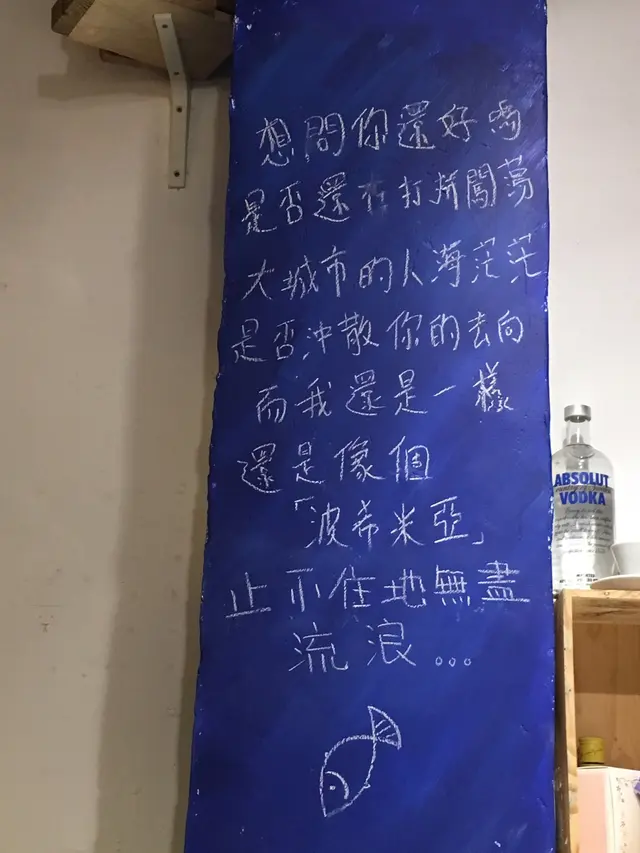 想問你還好嗎
是否還在打拼闖蕩
大城市的人海茫茫
是否沖散你的去向
而我還是一樣
還是像個
「波希米亞」
止不住地無盡
流浪...
ABSOLUT
VODKA